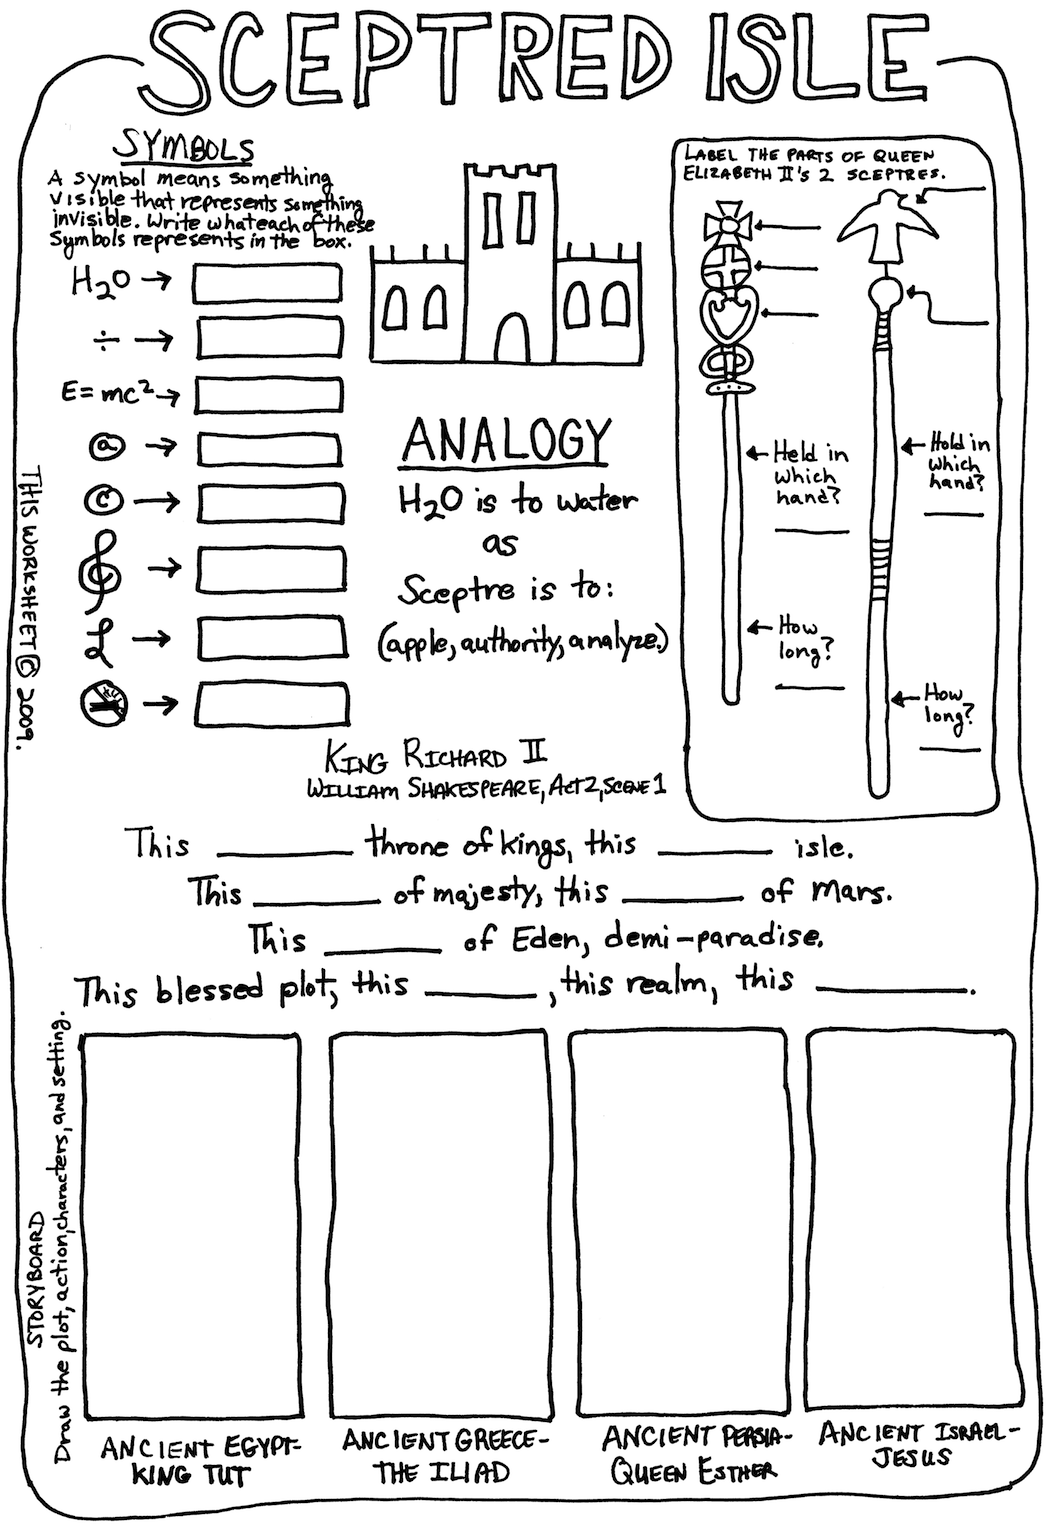 SCEPTRED ISLE
SYMBOLS
A symbol means something
visible that represents something
invisible. Write what each of these
Symbols represents in the box.
H₂O →
÷ →
E=mc² →
@ →
© →
𝄞 →
£ →
ANALOGY
H₂O is to water
as
Sceptre is to:
(apple, authority, analyze.)
LABEL THE PARTS OF QUEEN
ELIZABETH II'S 2 SCEPTRES.
Held in
which
hand?
How
long?
Hold in
which
hand?
How
long?
THIS WORKSHEET © 2009.
KING RICHARD II
WILLIAM SHAKESPEARE, ACT 2, SCENE 1
This ______ throne of kings, this ______ isle.
This ______ of majesty, this ______ of Mars.
This ______ of Eden, demi-paradise.
This blessed plot, this ______, this realm, this ______.
STORYBOARD
Draw the plot, action, characters, and setting.
ANCIENT EGYPT-
KING TUT
ANCIENT GREECE-
THE ILIAD
ANCIENT PERSIA-
QUEEN ESTHER
ANCIENT ISRAEL-
JESUS